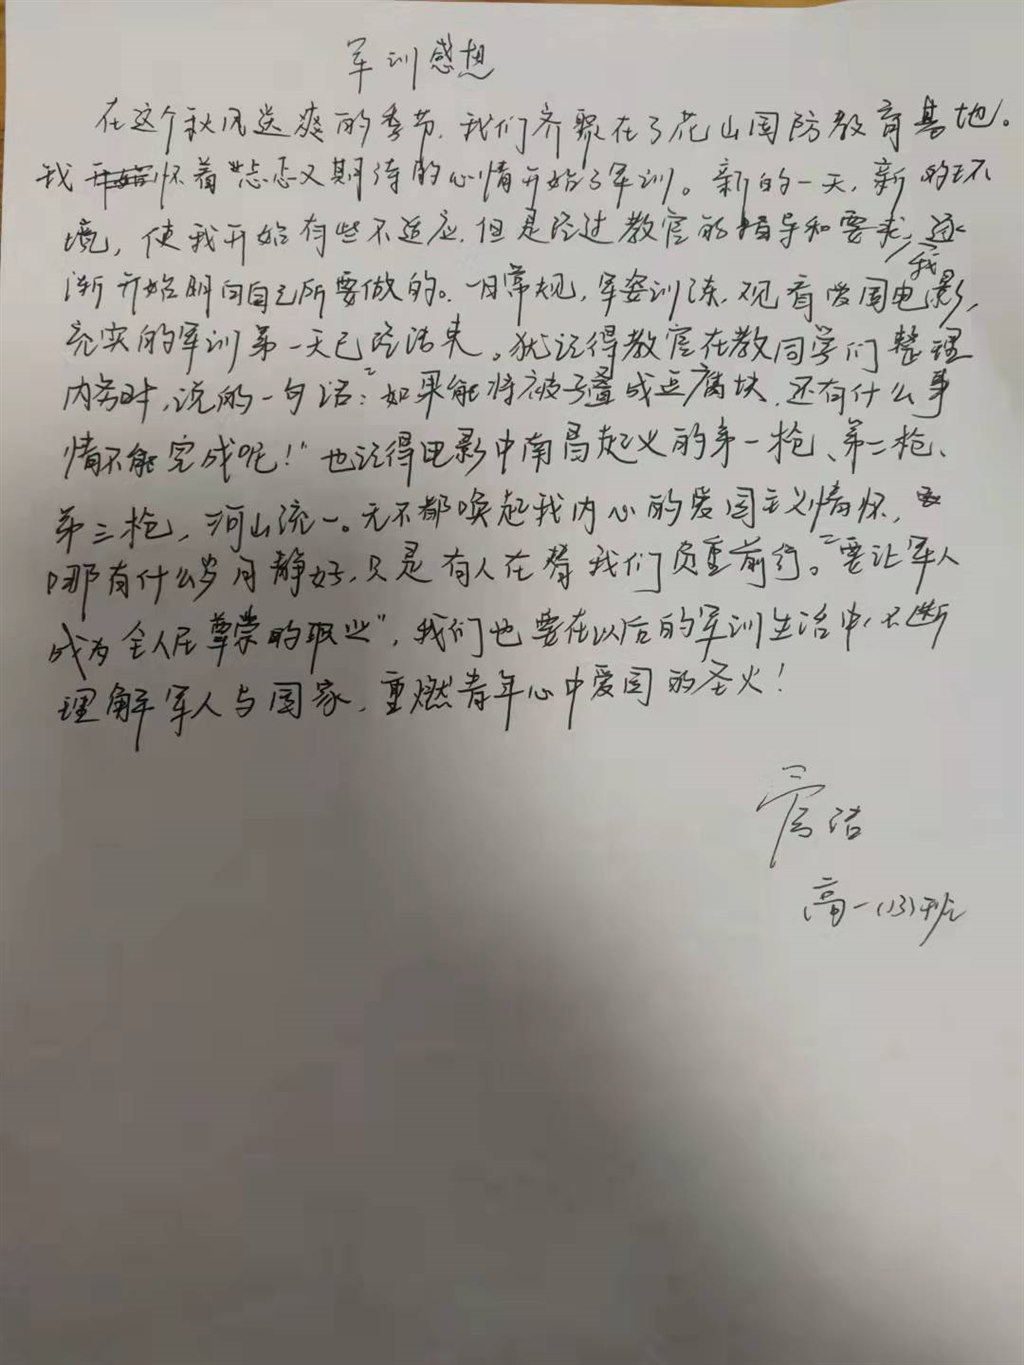 军训感想
在这个秋风送爽的季节，我们齐聚在了花山国防教育基地。
我怀着忐忑又期待的心情开始了军训。新的一天，新的环
境，使我开始有些不适应，但是经过教官的指导和要求，我逐
渐开始明白自己所要做的。一日常规，军姿训练，观看爱国电影，
充实的军训第一天已经结束。犹记得教官在教同学们整理
内务时，说的一句话：“如果能将被子叠成豆腐块，还有什么事
情不能完成呢！”也记得电影中南昌起义的第一枪、第二枪、
第三枪，河山统一。无不都唤起我内心的爱国主义情怀，
哪有什么岁月静好，只是有人在替我们负重前行。“要让军人
成为全人民尊崇的职业”，我们也要在以后的军训生活中，不断
理解军人与国家，重燃青年心中爱国的圣火！
洁
高一(13)班